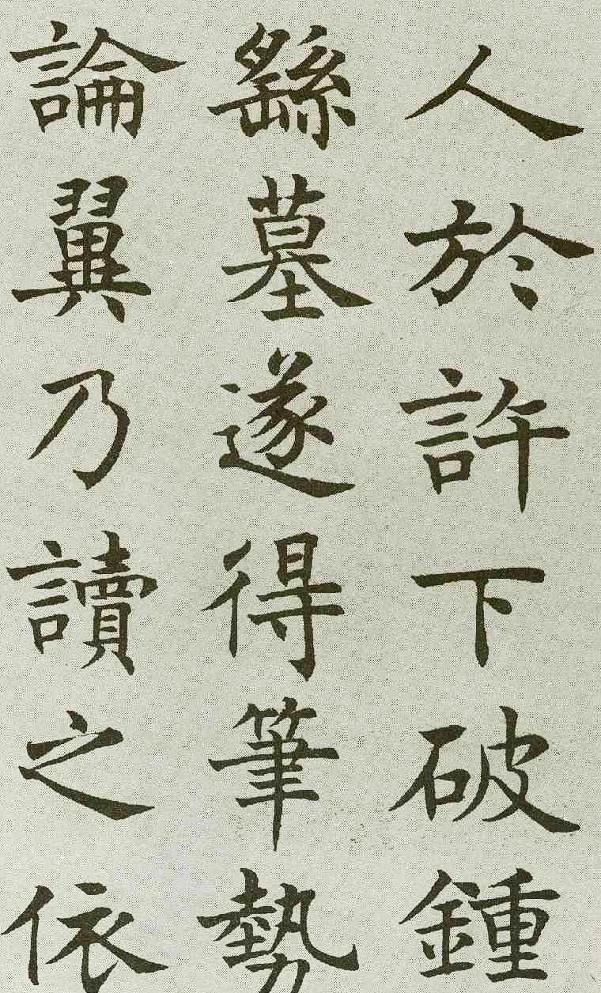 人於許下破鍾
繇墓遂得筆勢
論翼乃讀之依